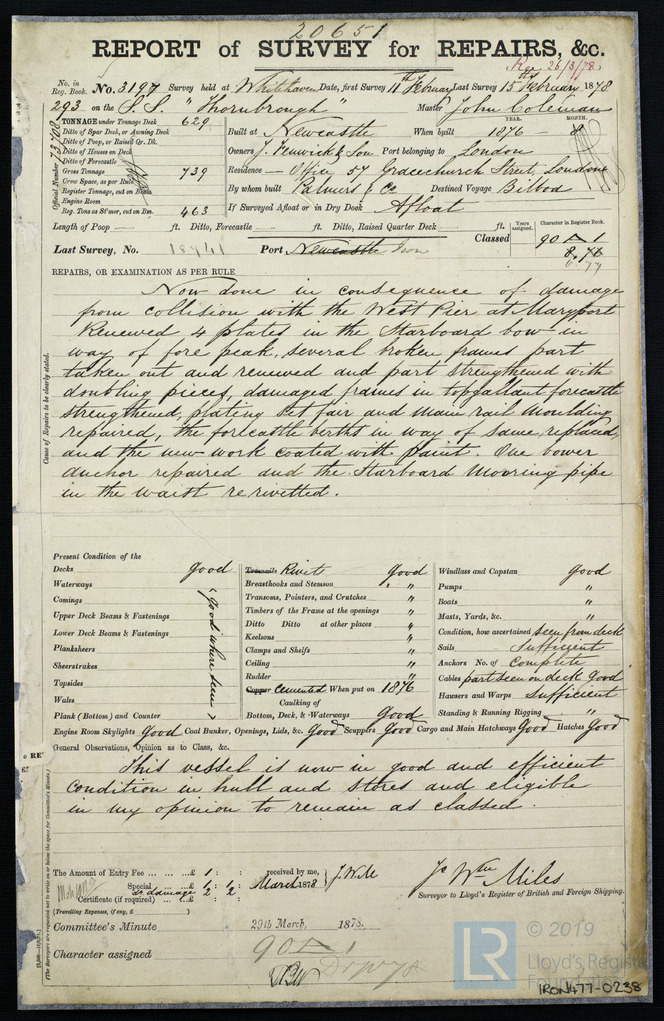 20651
REPORT of SURVEY for REPAIRS, &c.
Rec 26/3/78
No. in Reg. Book. No. 3197 Survey held at Whitehaven Date, first Survey 11th February Last Survey 15th February 1878
293 on the S.S. "Thornbrough" Master John Coleman
TONNAGE under Tonnage Deck 629
Ditto of Spar Deck, or Awning Deck
Ditto of Poop, or Raised Qr. Dk.
Ditto of Houses on Deck
Ditto of Forecastle
Gross Tonnage 739
Crew Space, as per Rule
Register Tonnage, out on Beam
Engine Room
Reg. Tons as St'mer, cut on Bm. 463
Official Number
Built at Newcastle When built YEAR. 1876 MONTH. 8
Owners J. Fenwick & Son Port belonging to London
Residence — Office, 57 Gracechurch Street, London
By whom built Palmers & Co Destined Voyage Bilboa
If Surveyed Afloat or in Dry Dock Afloat
Length of Poop — ft. Ditto, Forecastle — ft. Ditto, Raised Quarter Deck — ft.
Years assigned. Character in Register Book.
Classed 90 A 1
8,76
6,77
Last Survey, No. 18741 Port Newcastle Iron
REPAIRS, OR EXAMINATION AS PER RULE
Now done in consequence of damage
from collision with the West Pier at Maryport
Renewed 4 plates in the Starboard bow in
way of fore peak, several broken frames part
taken out and renewed and part strengthened with
doubling pieces, damaged frames in topgallant forecastle
strengthened, plating set fair and main rail moulding
repaired, the forecastle births in way of same replaced,
and the new work coated with paint. One bower
anchor repaired and the Starboard Mooring pipe
in the waist rerivitted.
Cause of Repairs to be clearly stated.
Present Condition of the
Decks good
Waterways
Comings
Upper Deck Beams & Fastenings
Lower Deck Beams & Fastenings
Planksheers
Sheerstrakes
Topsides
Wales
Plank (Bottom) and Counter
(good where seen)
Treenails Rivets good
Breasthooks and Stemson "
Transoms, Pointers, and Crutches "
Timbers of the Frame at the openings "
Ditto Ditto at other places "
Keelsons "
Clamps and Shelfs "
Ceiling "
Rudder "
Copper Cemented When put on 1876
Caulking of
Bottom, Deck, & Waterways Good
Windlass and Capstan good
Pumps "
Boats "
Masts, Yards, &c. "
Condition, how ascertained seen from deck
Sails Sufficient
Anchors No. of Complete
Cables part seen on deck Good
Hawsers and Warps Sufficient
Standing & Running Rigging "
Engine Room Skylights Good Coal Bunker, Openings, Lids, &c. Good Scuppers Good Cargo and Main Hatchways Good Hatches Good
General Observations, Opinion as to Class, &c.
This vessel is now in good and efficient
condition in hull and stores and eligible
in my opinion to remain as classed.
The Amount of Entry Fee ... £ 1 : :
Special ... £
do damage 2 2
Certificate (if required) ... £ : :
(Travelling Expenses, if any, £ )
received by me,
March 1878
Jno Wm Miles
Surveyor to Lloyd's Register of British and Foreign Shipping.
Committee's Minute 29th March, 1878.
Character assigned 90 A 1
© 2019
LR
Lloyd's Register
Foundation
IRON477-0238